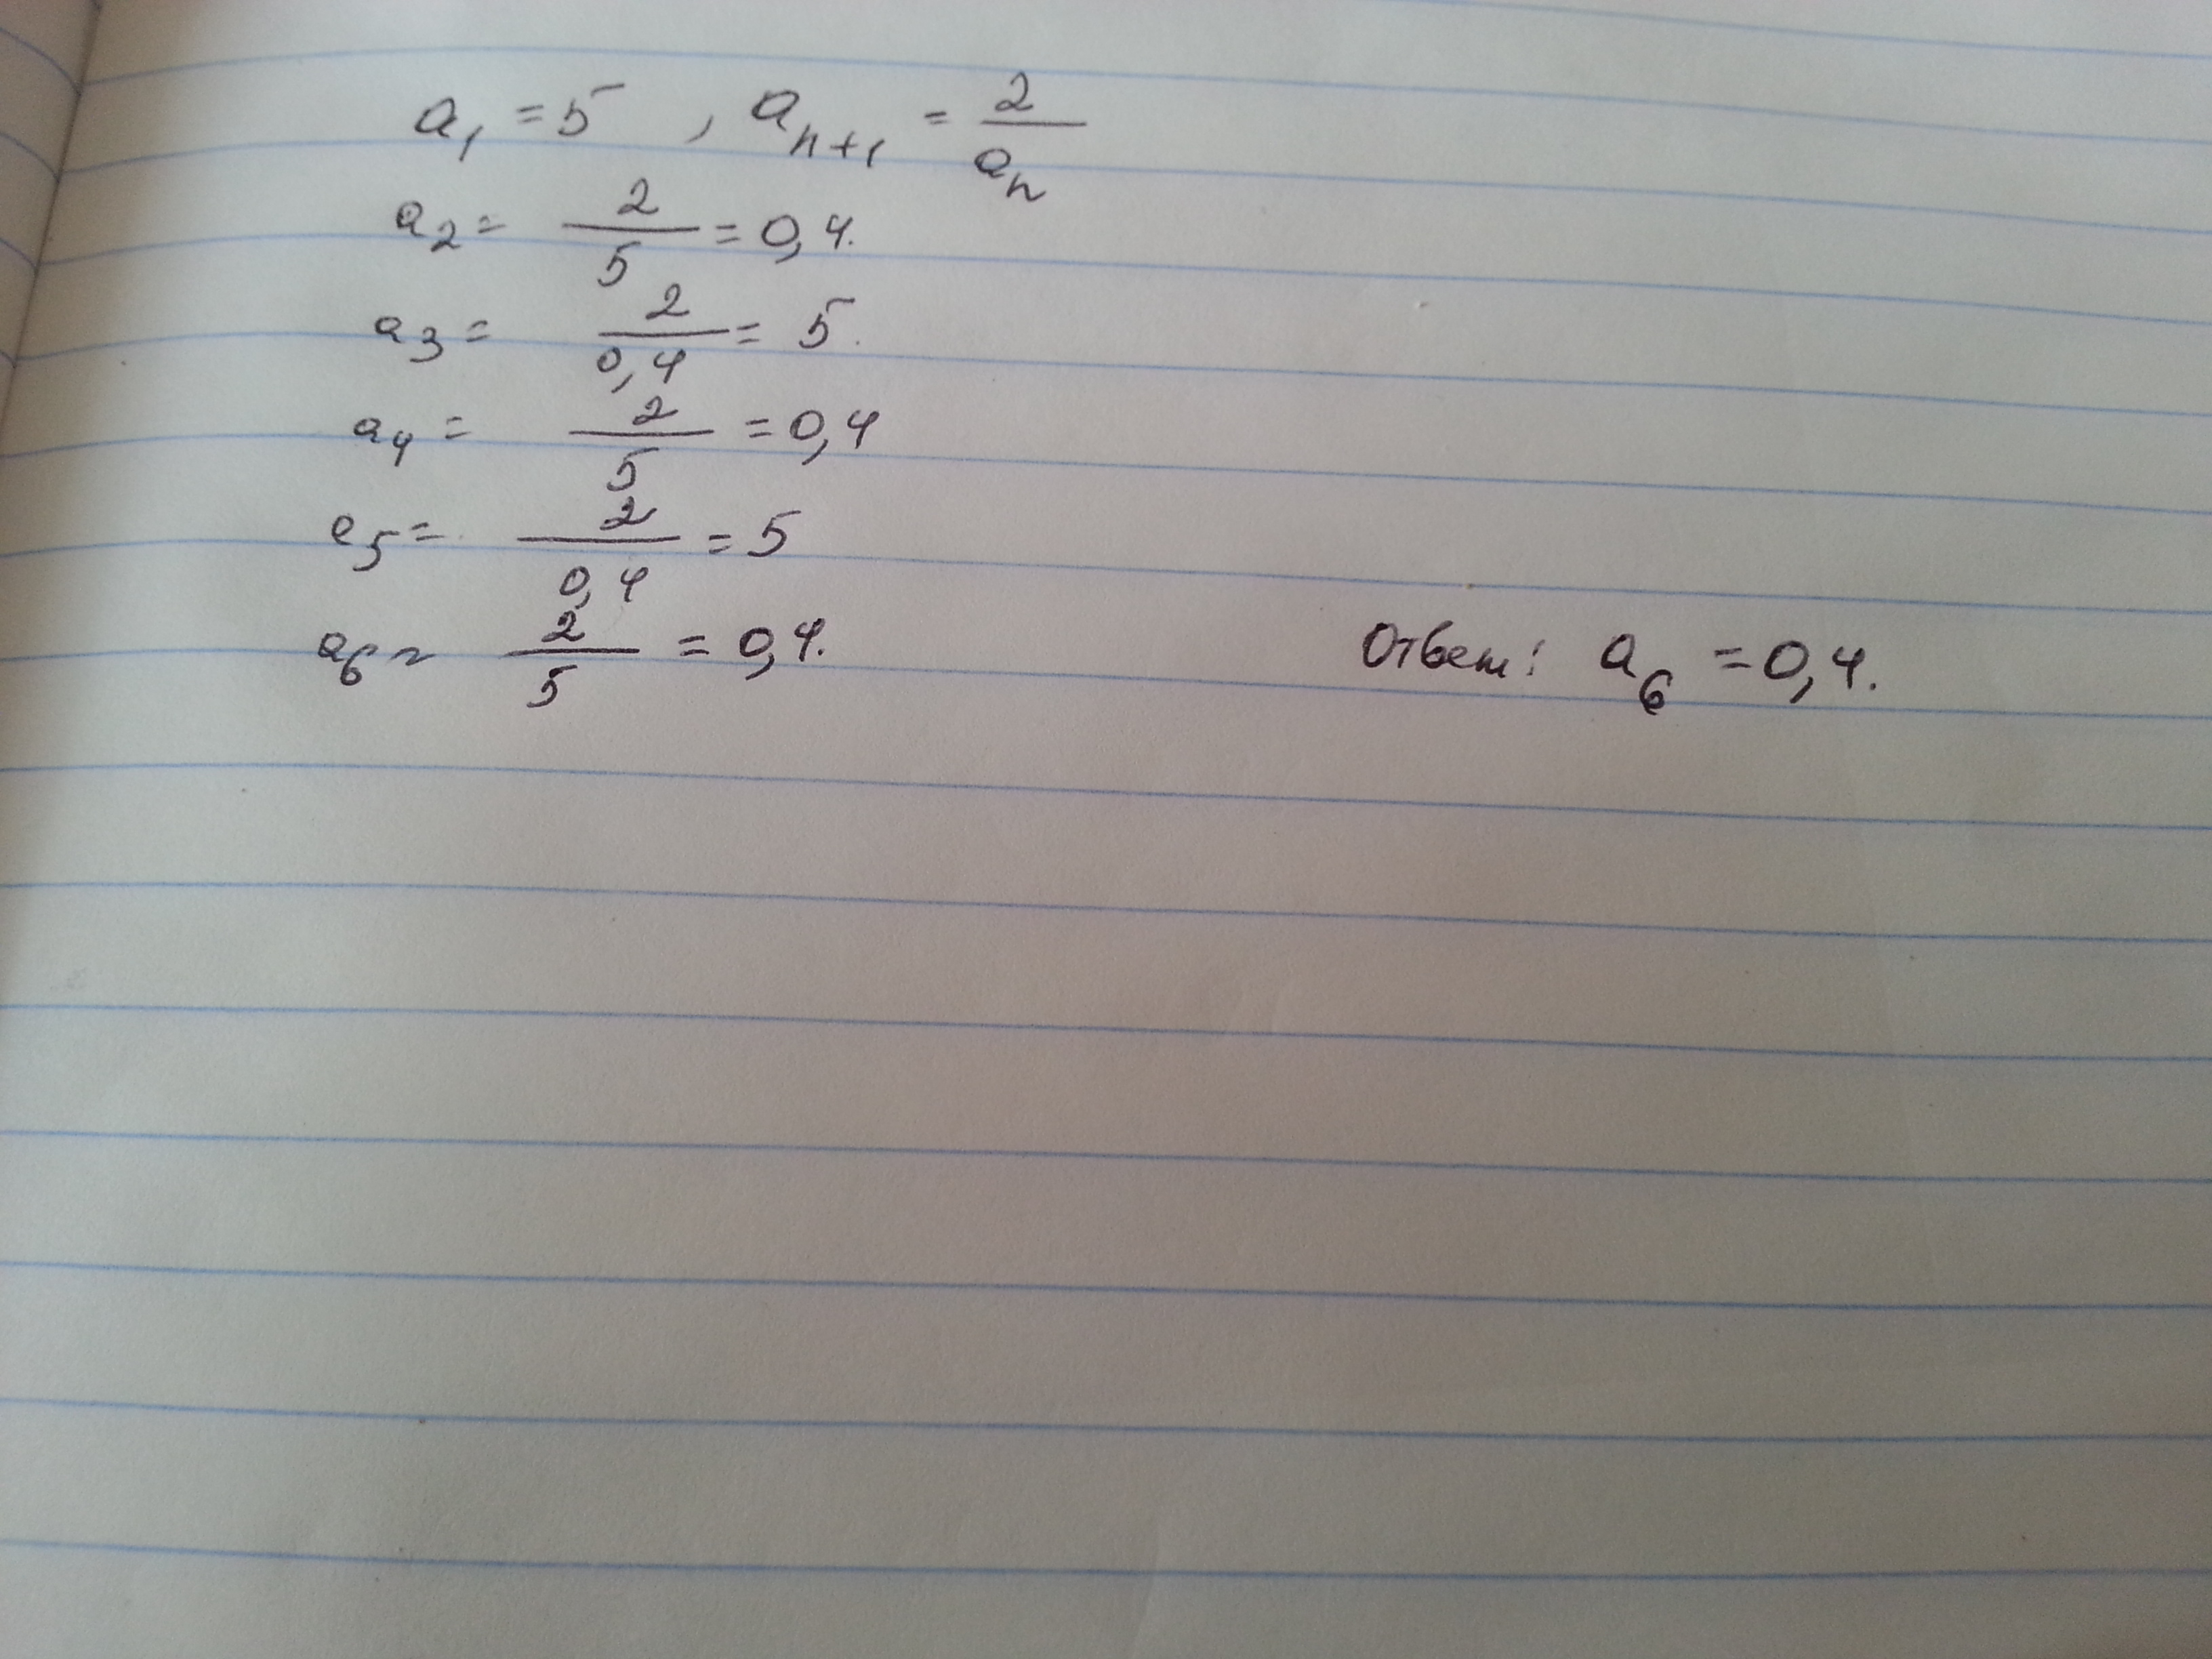 a₁ = 5 , aₙ₊₁ = 2/aₙ
a₂ = 2/5 = 0,4.
a₃ = 2/0,4 = 5.
a₄ = 2/5 = 0,4
a₅ = 2/0,4 = 5
a₆ = 2/5 = 0,4.
Ответ: a₆ = 0,4.